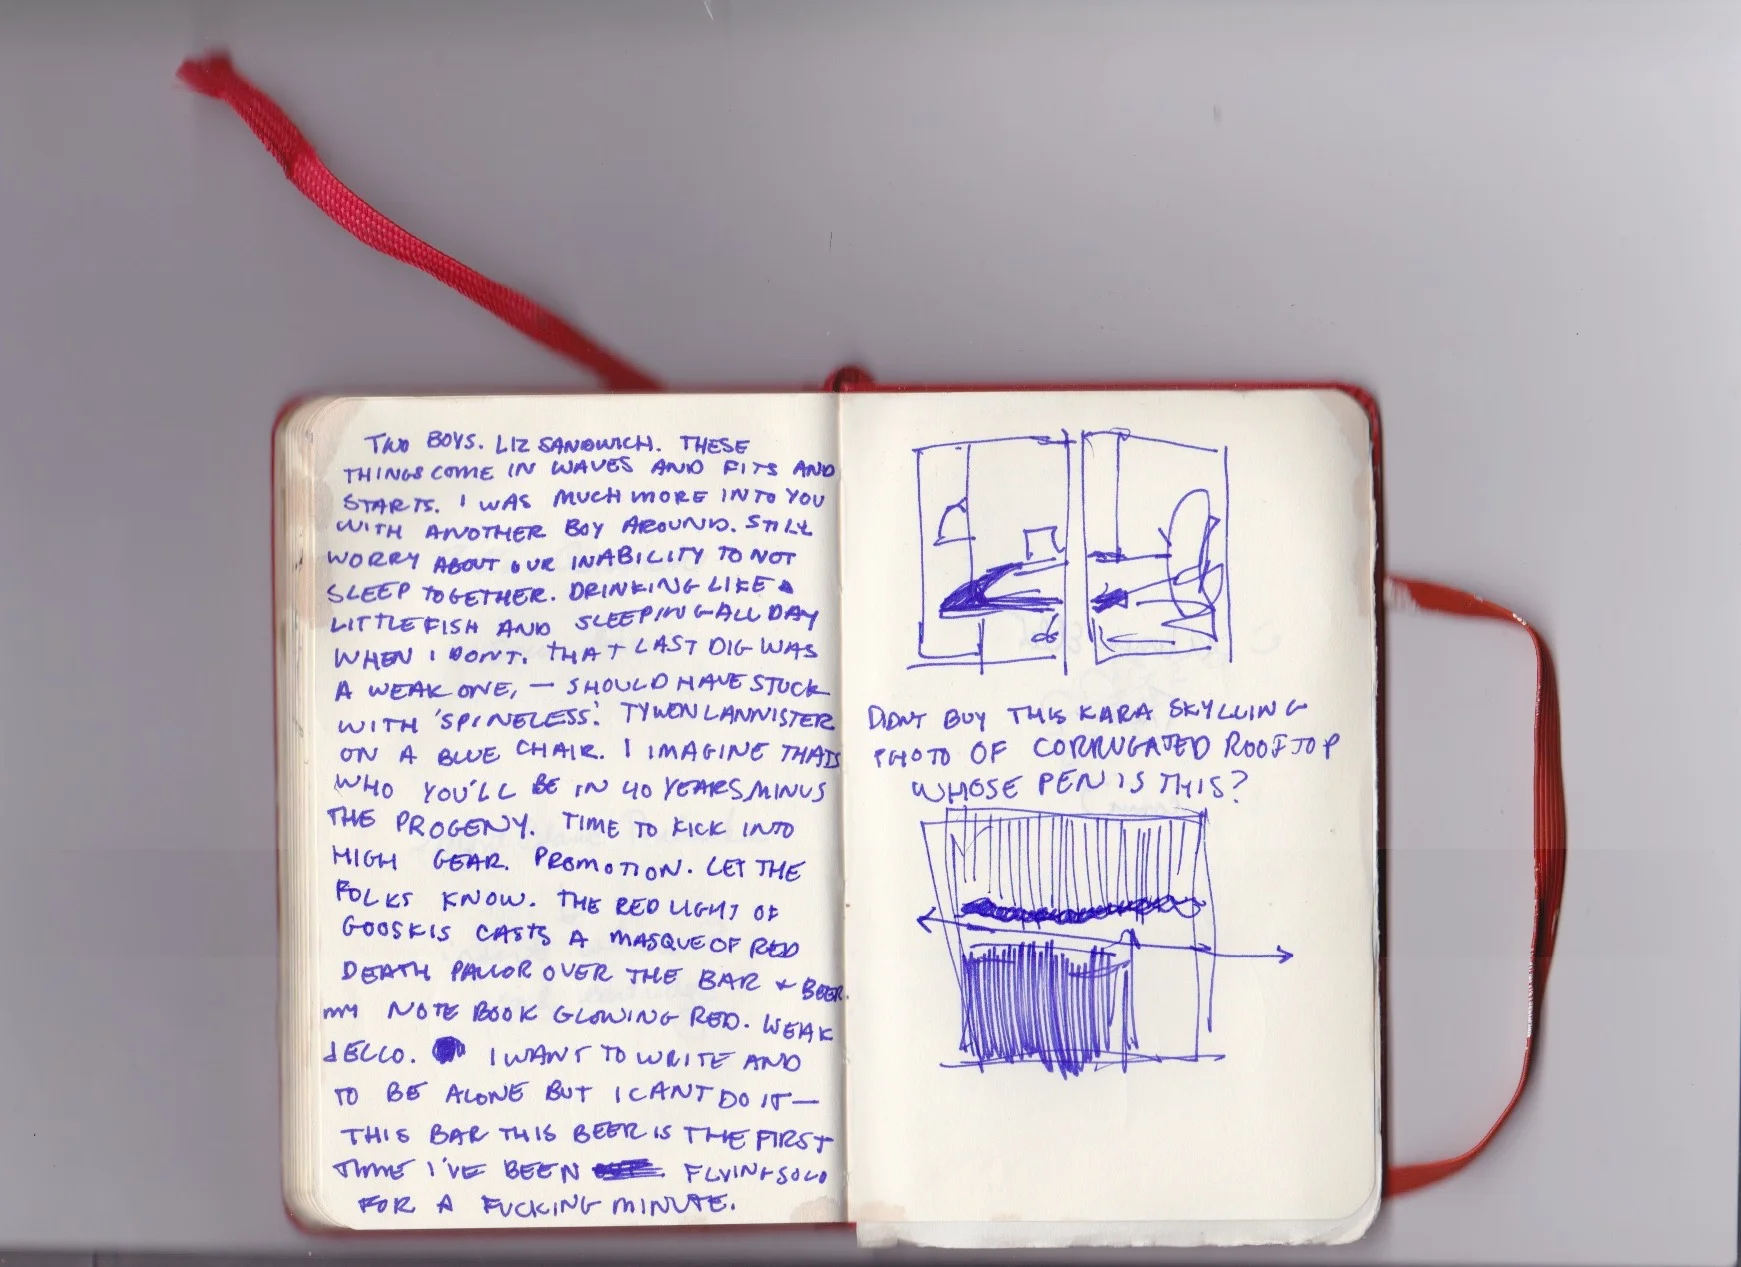 TWO BOYS. LIZ SANDWICH. THESE
THINGS COME IN WAVES AND FITS AND
STARTS. I WAS MUCH MORE INTO YOU
WITH ANOTHER BOY AROUND. STILL
WORRY ABOUT OUR INABILITY TO NOT
SLEEP TOGETHER. DRINKING LIKE A
LITTLE FISH AND SLEEPING ALL DAY
WHEN I DON'T. THAT LAST DIG WAS
A WEAK ONE, — SHOULD HAVE STUCK
WITH 'SPINELESS'. TYWEN LANNISTER
ON A BLUE CHAIR. I IMAGINE THATS
WHO YOU'LL BE IN 40 YEARS, MINUS
THE PROGENY. TIME TO KICK INTO
HIGH GEAR. PROMOTION. LET THE
FOLKS KNOW. THE RED LIGHT OF
GOOSKIS CASTS A MASQUE OF RED
DEATH PALLOR OVER THE BAR & BEER.
MY NOTEBOOK GLOWING RED. WEAK
JELLO. I WANT TO WRITE AND
TO BE ALONE BUT I CANT DO IT —
THIS BAR THIS BEER IS THE FIRST
TIME I'VE BEEN FLYING SOLO
FOR A FUCKING MINUTE.
DIDNT BUY THIS KARA SKYLLING
PHOTO OF CORRUGATED ROOFTOP
WHOSE PEN IS THIS?